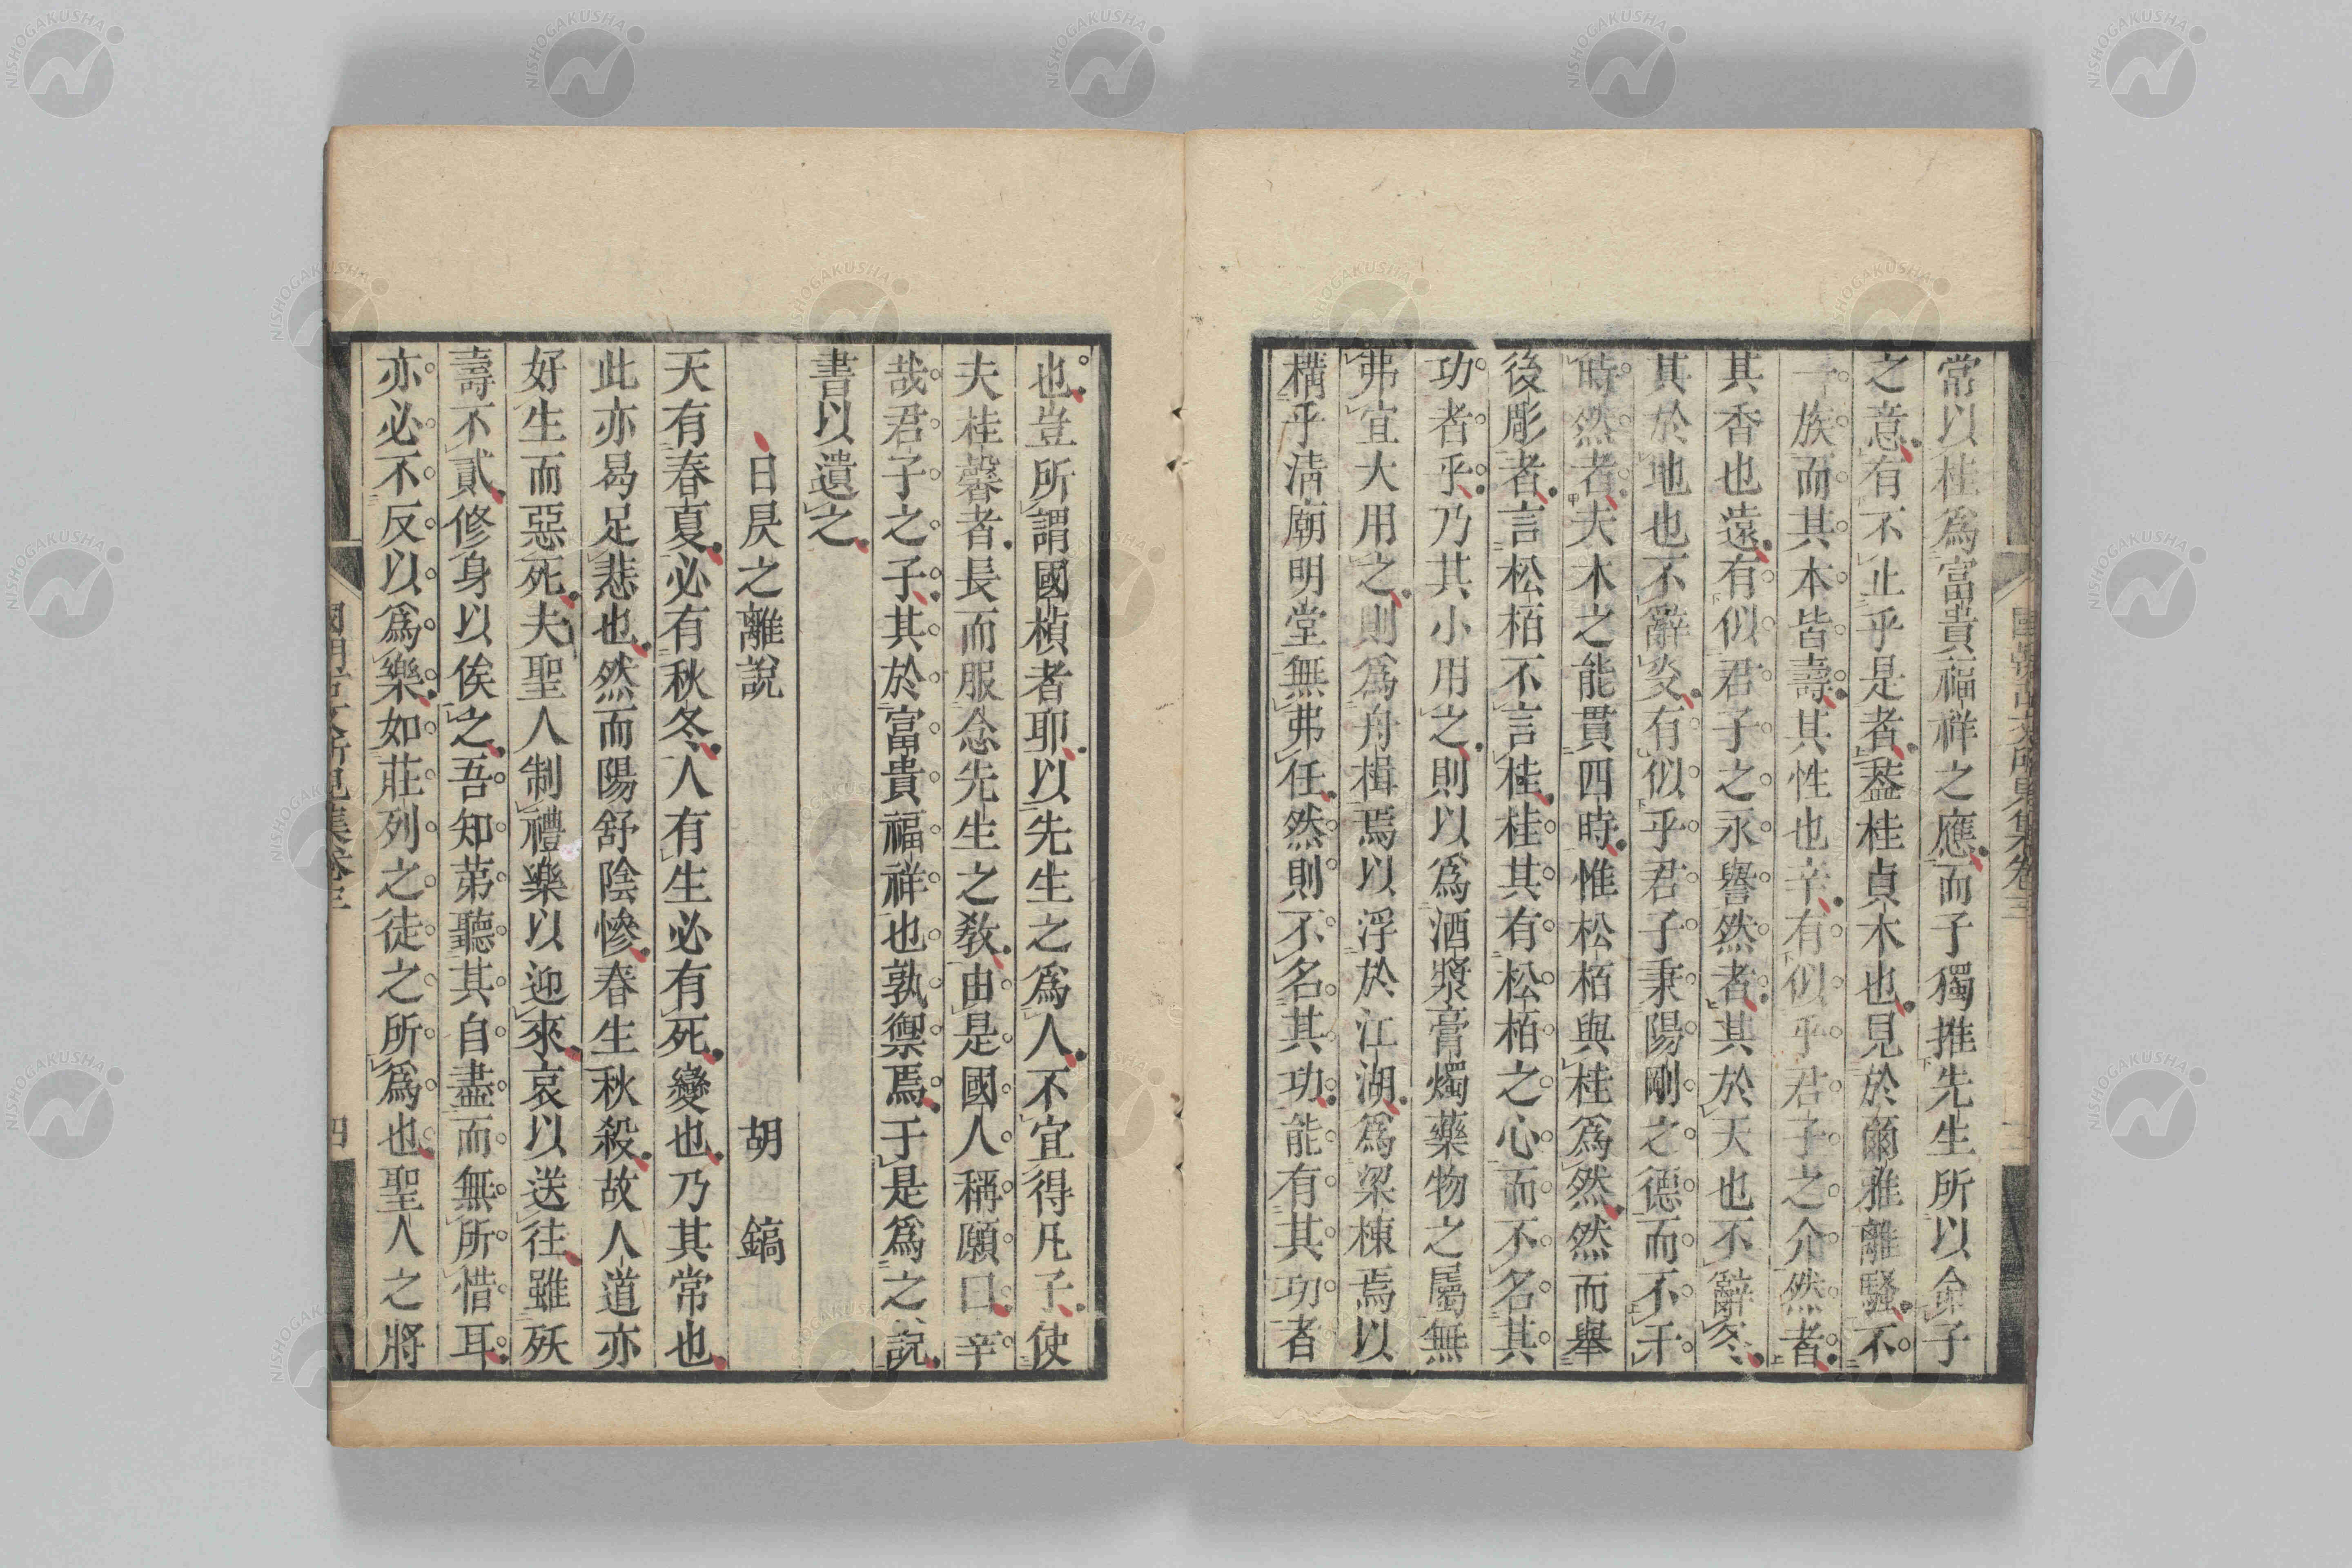 常以桂爲富貴福祥之應而子獨推先生所以命子
之意有不止乎是者蓋桂貞木也見於爾雅離騷不
一族而其本皆壽其性也辛有似乎君子之介然者
其香也遠有似君子之永譽然者其於天也不辭冬
其於地也不辭炎有似乎君子秉陽剛之德而不干
時然者夫木之能貫四時惟松栢與桂爲然然而舉
後彫者言松栢不言桂桂其有松栢之心而不名其
功者乎乃其小用之則以爲酒漿膏燭藥物之屬無
弗宜大用之則爲舟楫焉以浮於江湖爲梁棟焉以
構乎淸廟明堂無弗任然則不名其功能有其功者
也豈所謂國楨者耶以先生之爲人不宜得凡子使
夫桂馨者長而服念先生之敎由是國人稱願曰幸
哉君子之子其於富貴福祥也孰禦焉于是爲之說
書以遺之
日昃之離說 胡 鎬
天有春夏必有秋冬人有生必有死變也乃其常也
此亦曷足悲也然而陽舒陰慘春生秋殺故人道亦
好生而惡死夫聖人制禮樂以迎來哀以送往雖殀
壽不貳修身以俟之吾知苐聽其自盡而無所惜耳
亦必不反以爲樂如莊列之徒之所爲也聖人之將
國朝古文所見集卷三 四
NISHOGAKUSHA